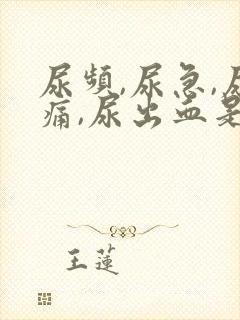 尿频,尿急,尿
痛,尿出血是
王莲